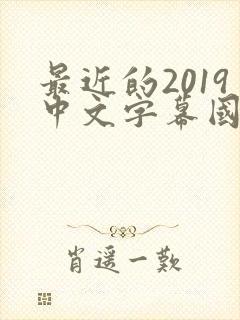 最近的2019
中文字幕國
肖遥一歎